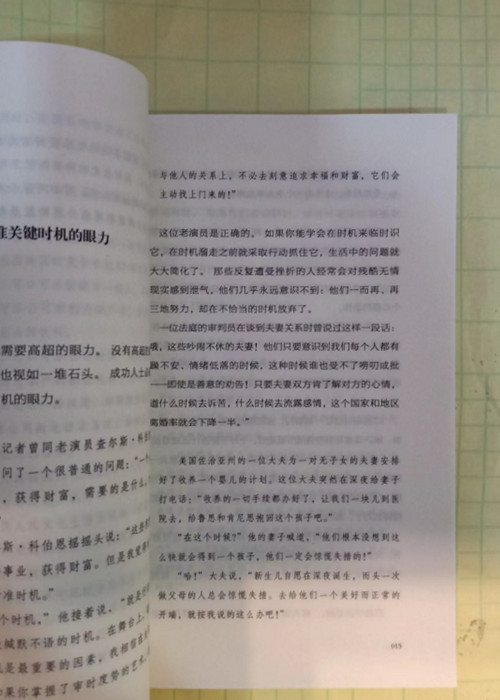 关键时机的眼力
需要高超的眼力。 没有高超的
也视如一堆石头。 成功人士
机的眼力。
记者曾同老演员查尔斯·科
问了一个很普通的问题：“一
，获得财富，需要的是什么
斯·科伯恩摇摇头说：“这
事业，获得财富。但是我
准时机。”
个时机，”他接着说，“就是
缄默不语的时机。在舞台上，
是最重要的因素，我相信
果你掌握了审时度势的艺术，
与他人的关系上，不必去刻意追求幸福和财富，它们会
主动找上门来的！”
这位老演员是正确的。 如果你能学会在时机来临时识
它，在时机溜走之前就采取行动抓住它，生活中的问题就
大大简化了。 那些反复遭受挫折的人经常会对残酷无情
现实感到泄气，他们几乎永远意识不到：他们一而再、再
三地努力，却在不恰当的时机放弃了。
一位法庭的审判员在谈到夫妻关系时曾说过这样一段话：
哦，这些吵闹不休的夫妻！他们只要意识到我们每个人都有
躁不安、情绪低落的时候，这种时候谁也受不了唠叨或批
——即使是善意的劝告！只要夫妻双方肯了解对方的心情，
道什么时候去诉苦，什么时候去流露感情，这个国家和地区
离婚率就会下降一半。”
美国佐治亚州的一位大夫为一对无子女的夫妻安排
好了收养一个婴儿的计划。这位大夫突然在深夜给妻子
打电话：“收养的一切手续都办好了，让我们一块儿到医
院去，给鲁思和肯尼思抱回这个孩子吧。”
“在这个时候？”他的妻子喊道，“他们根本没想到这
么快就会得到一个孩子，他们一定会惊慌失措的！”
“哈！”大夫说，“新生儿自愿在深夜诞生，而头一次
做父母的人总会惊慌失措。去给他们一个美好而正常的
开端，就按我说的这么办吧！”
055